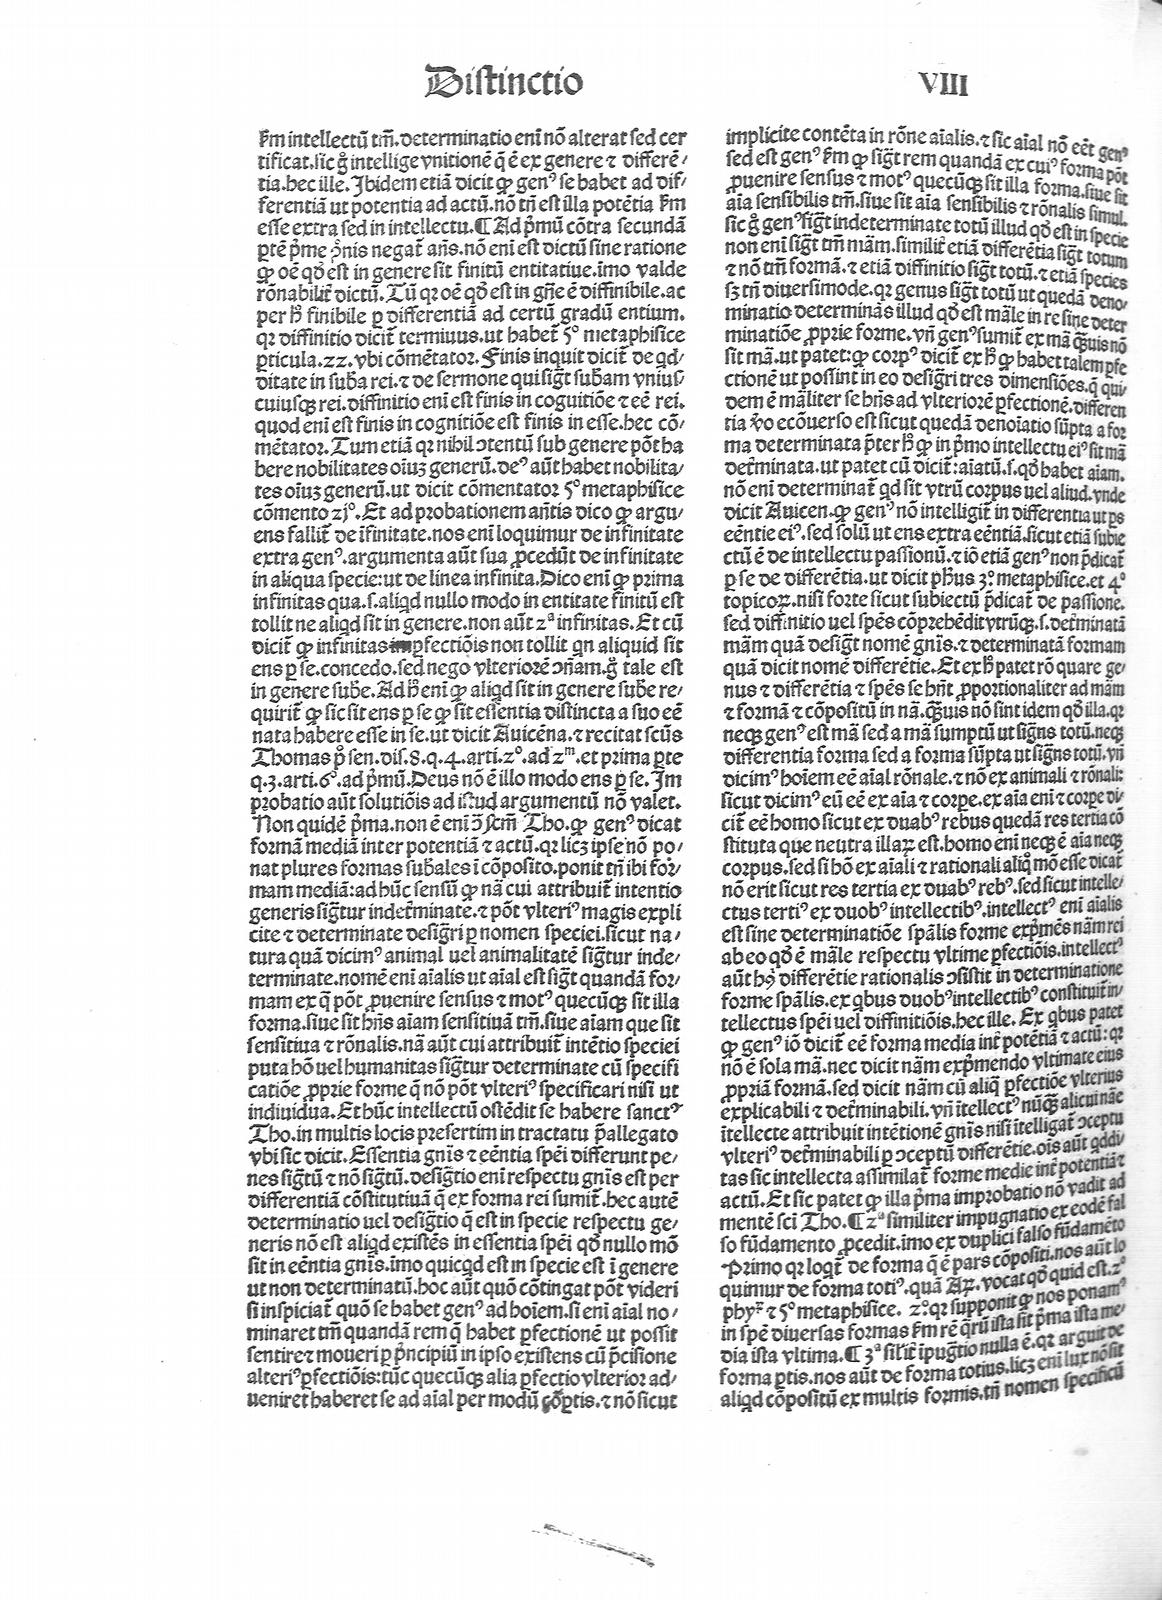 Distinctio VIII
s̄m intellectū tm̄.determinatio enī nō alterat sed cer
tificat.sic g̊ intellige vnitionē q̄ ē ex genere ⁊ differē/
tia.hec ille.Ibidem etiā dicit ꝙ genꝰ se habet ad dif/
ferentiā ut potentia ad actū.nō tn̄ est illa potētia s̄m
esse extra sed in intellectu.¶ Ad p̄mū cōtra secundā
ptē p̄me ꝯ̄nis negat̄ an̄s.nō enī est dictū sine ratione
ꝙ oē qd̄ est in genere sit finitū entitatiue.imo valde
rōnabilit̄ dictū.Tū qꝛ oē qd̄ est in gn̄e ē diffinibile.ac
per h̄ finibile ꝑ differentiā ad certū gradū entium.
qꝛ diffinitio dicit̄ terminus.ut habet̄ 5° metaphisice
ꝑticula.22.vbi cōmētator.Finis inquit dicit̄ de qd/
ditate in sub̄a rei.⁊ de sermone qui sigt̄ sub̄am vnius/
cuiusqꝫ rei.diffinitio enī est finis in cognitiōe ⁊ eē rei.
quod enī est finis in cognitiōe est finis in esse.hec cō/
mētator.Tum etiā qꝛ nihil ꝯtentū sub genere pōt ha
bere nobilitates oīuꝫ generū.deꝰ aūt habet nobilita/
tes oīuꝫ generū.ut dicit cōmentator 5° metaphisice
cōmento 21°.Et ad probationem an̄tis dico ꝙ argu/
ens fallit̄ de īfinitate.nos enī loquimur de infinitate
extra genꝰ.argumenta aūt sua ꝓcedūt de infinitate
in aliqua specie:ut de linea infinita.Dico enī ꝙ prima
infinitas qua.s.aliqd nullo modo in entitate finitū est
tollit ne aliqd sit in genere.non aūt 2ª infinitas.Et cū
dicit̄ ꝙ infinitas ꝑfectiōis non tollit qn aliquid sit
ens ꝑ se.concedo.sed nego vlteriorē ꝯn̄am.g̊ tale est
in genere sub̄e.Ad h̄ enī ꝙ aliqd sit in genere sub̄e re/
quirit̄ ꝙ sic sit ens ꝑ se ꝙ sit essentia distincta a suo eē
nata habere esse in se.ut dicit Auicēna.⁊ recitat sc̄us
Thomas p̊ sen.dis.8.q.4.arti.2°.ad 2ᵐ.et prima pte
q.3.arti.6°.ad p̄mū.Deus nō ē illo modo ens ꝑ se.Im
probatio aūt solutiōis ad istud argumentū nō valet.
Non quidē p̄ma.non ē enī ꝯ̄ sc̄m Tho.ꝙ genꝰ dicat
formā mediā inter potentiā ⁊ actū.qꝛ licꝫ ipse nō po/
nat plures formas sub̄ales ī cōposito.ponit tn̄ ibi for/
mam mediā:ad hūc sensū ꝙ nā cui attribuit̄ intentio
generis sigt̄ur indet̄minate.⁊ pōt vlteriꝰ magis expli
cite ⁊ determinate desigri ꝑ nomen speciei.sicut na/
tura quā dicimꝰ animal uel animalitatē sigt̄ur inde/
terminate.nomē enī aīalis ut aīal est sigt̄ quandā for/
mam ex q̄ pōt ꝓuenire sensus ⁊ motꝰ quecūqꝫ sit illa
forma.siue sit hn̄s aīam sensitiuā tm̄.siue aīam que sit
sensitiua ⁊ rōnalis.nā aūt cui attribuit̄ intētio speciei
puta hō uel humanitas sigt̄ur determinate cū specifi
catiōe ꝓprie forme q̄ nō pōt vlteriꝰ specificari nisi ut
indiuidua.Et hūc intellectū ostēdit se habere sanctꝰ
Tho.in multis locis presertim in tractatu p̄allegato
vbi sic dicit.Essentia gn̄is ⁊ eēntia spēi differunt pe/
nes sigt̄ū ⁊ nō sigt̄ū.desigtio enī respectu gn̄is est per
differentiā cōstitutiuā q̄ ex forma rei sumit̄.hec autē
determinatio uel desigtio q̄ est in specie respectu ge/
neris nō est aliqd existēs in essentia spēi qd̄ nullo mō
sit in eēntia gn̄is.imo quicqd est in specie est ī genere
ut non determinatū.hoc aūt quō cōtingat pōt videri
si inspiciat̄ quō se habet genꝰ ad hoīem.si enī aīal no/
minaret tm̄ quandā rem q̄ habet ꝑfectionē ut possit
sentire ⁊ moueri ꝑ p̄ncipiū in ipso existens cū p̄cisione
alteriꝰ ꝑfectiōis:tūc quecūqꝫ alia ꝑfectio vlterior ad/
ueniret haberet se ad aīal per modū cōptis.⁊ nō sicut
implicite contēta in rōne aīalis.⁊ sic aīal nō eēt genꝰ
sed est genꝰ s̄m ꝙ sigt̄ rem quandā ex cuiꝰ forma pōt
ꝓuenire sensus ⁊ motꝰ quecūqꝫ sit illa forma.siue sit
aīa sensibilis tm̄.siue sit aīa sensibilis ⁊ rōnalis simul.
sic g̊ genꝰ sigt̄ indeterminate totū illud qd̄ est in specie
non enī sigt̄ tm̄ mām.similit̄ etiā differētia sigt̄ totum
⁊ nō tm̄ formā.⁊ etiā diffinitio sigt̄ totū.⁊ etiā species
sꝫ tn̄ diuersimode.qꝛ genus sigt̄ totū ut quedā deno/
minatio determinās illud qd̄ est māle in re sine deter
minatiōe ꝓprie forme.vn̄ genꝰ sumit̄ ex mā q̄uis nō
sit mā.ut patet:ꝙ corpꝰ dicit̄ ex h̄ ꝙ habet talem pfe
ctionē ut possint in eo desigri tres dimensiōes.q̄ qui/
dem ē māliter se hn̄s ad vlteriorē ꝑfectionē.differen
tia v̊o ecōuerso est sicut quedā denoīatio sūpta a for
ma determinata p̄ter h̄ ꝙ in p̄mo intellectu eiꝰ sit mā
det̄minata.ut patet cū dicit̄:aīatū.s.qd̄ habet aīam.
nō enī determinat̄ qd sit vtrū corpus uel aliud.vnde
dicit Auicen.ꝙ genꝰ nō intelligit̄ in differentia ut ps
eēntie eiꝰ.sed solū ut ens extra eēntiā.sicut etiā subie
ctū ē de intellectu passionū.⁊ iō etiā genꝰ non p̄dicat̄
ꝑ se de differētia.ut dicit ph̄us 3° metaphisice.et 4°
topicoꝝ.nisi forte sicut subiectū p̄dicat̄ de passione.
sed diffinitio uel spēs cōprehēdit vtrūqꝫ.s.det̄minatā
mām quā desigt̄ nomē gn̄is.⁊ determinatā formam
quā dicit nomē differētie.Et ex h̄ patet rō quare ge/
nus ⁊ differētia ⁊ spēs se hn̄t ꝓportionaliter ad mām
⁊ formā ⁊ cōpositū in nā.q̄uis nō sint idem qd̄ illa.qꝛ
neqꝫ genꝰ est mā sed a mā sumptū ut sign̄s totū.neqꝫ
differentia forma sed a forma sūpta ut sign̄s totū.vn̄
dicimꝰ hoīem eē aīal rōnale.⁊ nō ex animali ⁊ rōnali:
sicut dicimꝰ eū eē ex aīa ⁊ corpe.ex aīa enī ⁊ corpe di/
cit̄ eē homo sicut ex duabꝰ rebus quedā res tertia cō
stituta que neutra illaꝝ est.homo enī neqꝫ ē aīa neqꝫ
corpus.sed si hō ex aīali ⁊ rationali aliq̊ mō esse dicat̄
nō erit sicut res tertia ex duabꝰ rebꝰ.sed sicut intelle/
ctus tertiꝰ ex duobꝰ intellectibꝰ.intellectꝰ enī aīalis
est sine determinatiōe spālis forme exp̄mēs nām rei
ab eo qd̄ ē māle respectu vltime ꝑfectiōis.intellectꝰ
aūt hꝰ differētie rationalis ꝯsistit in determinatione
forme spālis.ex qbus duobꝰ intellectibꝰ constituit̄ in/
tellectus spēi uel diffinitiōis.hec ille. Ex qbus patet
ꝙ genꝰ iō dicit̄ eē forma media int̄ potētiā ⁊ actū:qꝛ
nō ē sola mā.nec dicit nām exp̄mendo vltimate eius
ꝓpriā formā.sed dicit nām cū aliq̄ ꝑfectiōe vlterius
explicabili ⁊ det̄minabili.vn̄ ītellectꝰ nūq̄ꝫ alicui nāe
ītellecte attribuit intētionē gn̄is nisi ītelligat̄ ꝯceptu
vlteriꝰ det̄minabili ꝑ ꝯceptū differētie.oīs aūt qddi/
tas sic intellecta assimilat̄ forme medie int̄ potentiā ⁊
actū.Et sic patet ꝙ illa p̄ma improbatio nō vadit ad
mentē sc̄i Tho.¶ 2ª similiter impugnatio ex eodē fal
so fūdamento ꝓcedit.imo ex duplici falso fūdamēto
Primo qꝛ loqt̄ de forma q̄ ē pars cōpositi.nos aūt lo
quimur de forma totiꝰ.quā Aꝝ.vocat qd̄ quid est.2°
phyꝝ ⁊ 5° metaphisice. 2°.qꝛ supponit ꝙ nos ponamꝰ
in spē diuersas formas s̄m rē q̄rū ista sit p̄ma ista me/
dia ista vltima.¶ 3ª sil̄it̄ īpugtio nulla ē.qꝛ arguit de
forma ptis.nos aūt de forma totius.licꝫ enī lux nō sit
aliqd cōpositū ex multis formis.tn̄ nomen specificū